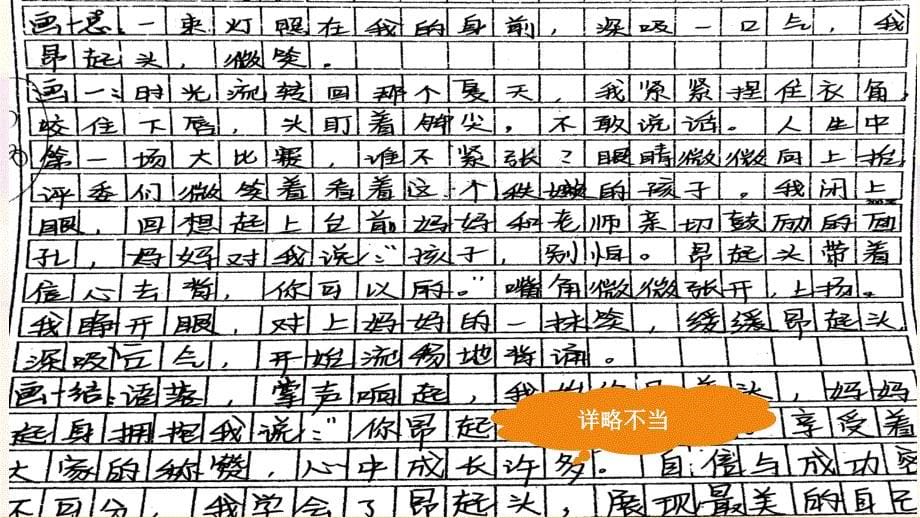 画十意：一束灯照在我的身前，深吸一口气，我
昂起头，微笑。
画一：时光流转回那个夏天，我紧紧捏住衣角，
咬住下唇，头盯着脚尖，不敢说话。人生中
第一场大比赛，谁不紧张？眼睛微微向上抬，
评委们微笑着看着这一个稚嫩的孩子。我闭上
眼，回想起上台前妈妈和老师亲切鼓励的面
孔，妈妈对我说：“孩子，别怕。昂起头带着
信心去背，你可以的。”嘴角微微张开，上扬。
我睁开眼，对上妈妈的一抹笑，缓缓昂起头
深吸口气，开始流畅地背诵。
画十结：语落，掌声响起，我 头，妈妈
起身拥抱我说：“你昂起 享受着
大家的称赞，心中成长许多。自信与成功密
不可分，我学会了昂起头，展现最美的自己
详略不当